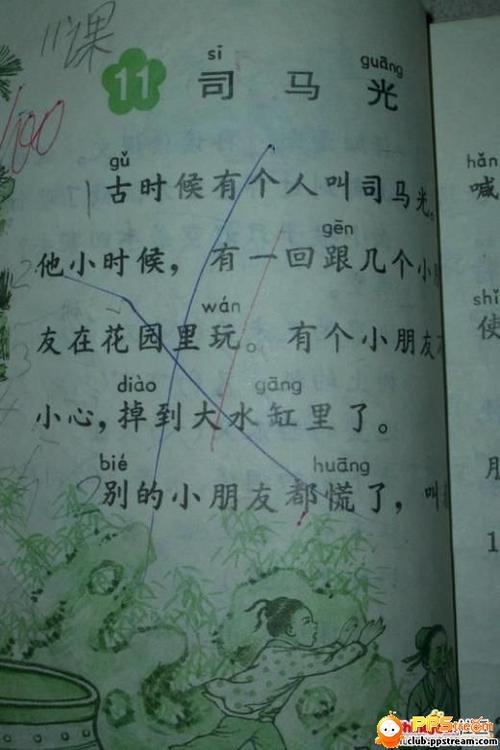 11课
100
sī guāng
11 司马光
gǔ
古时候有个人叫司马光。
gēn
他小时候，有一回跟几个小
wán
友在花园里玩。有个小朋友
diào gāng
小心，掉到大水缸里了。
bié huāng
别的小朋友都慌了，叫
hǎn
喊
shǐ
使
PPS
club.ppstream.com